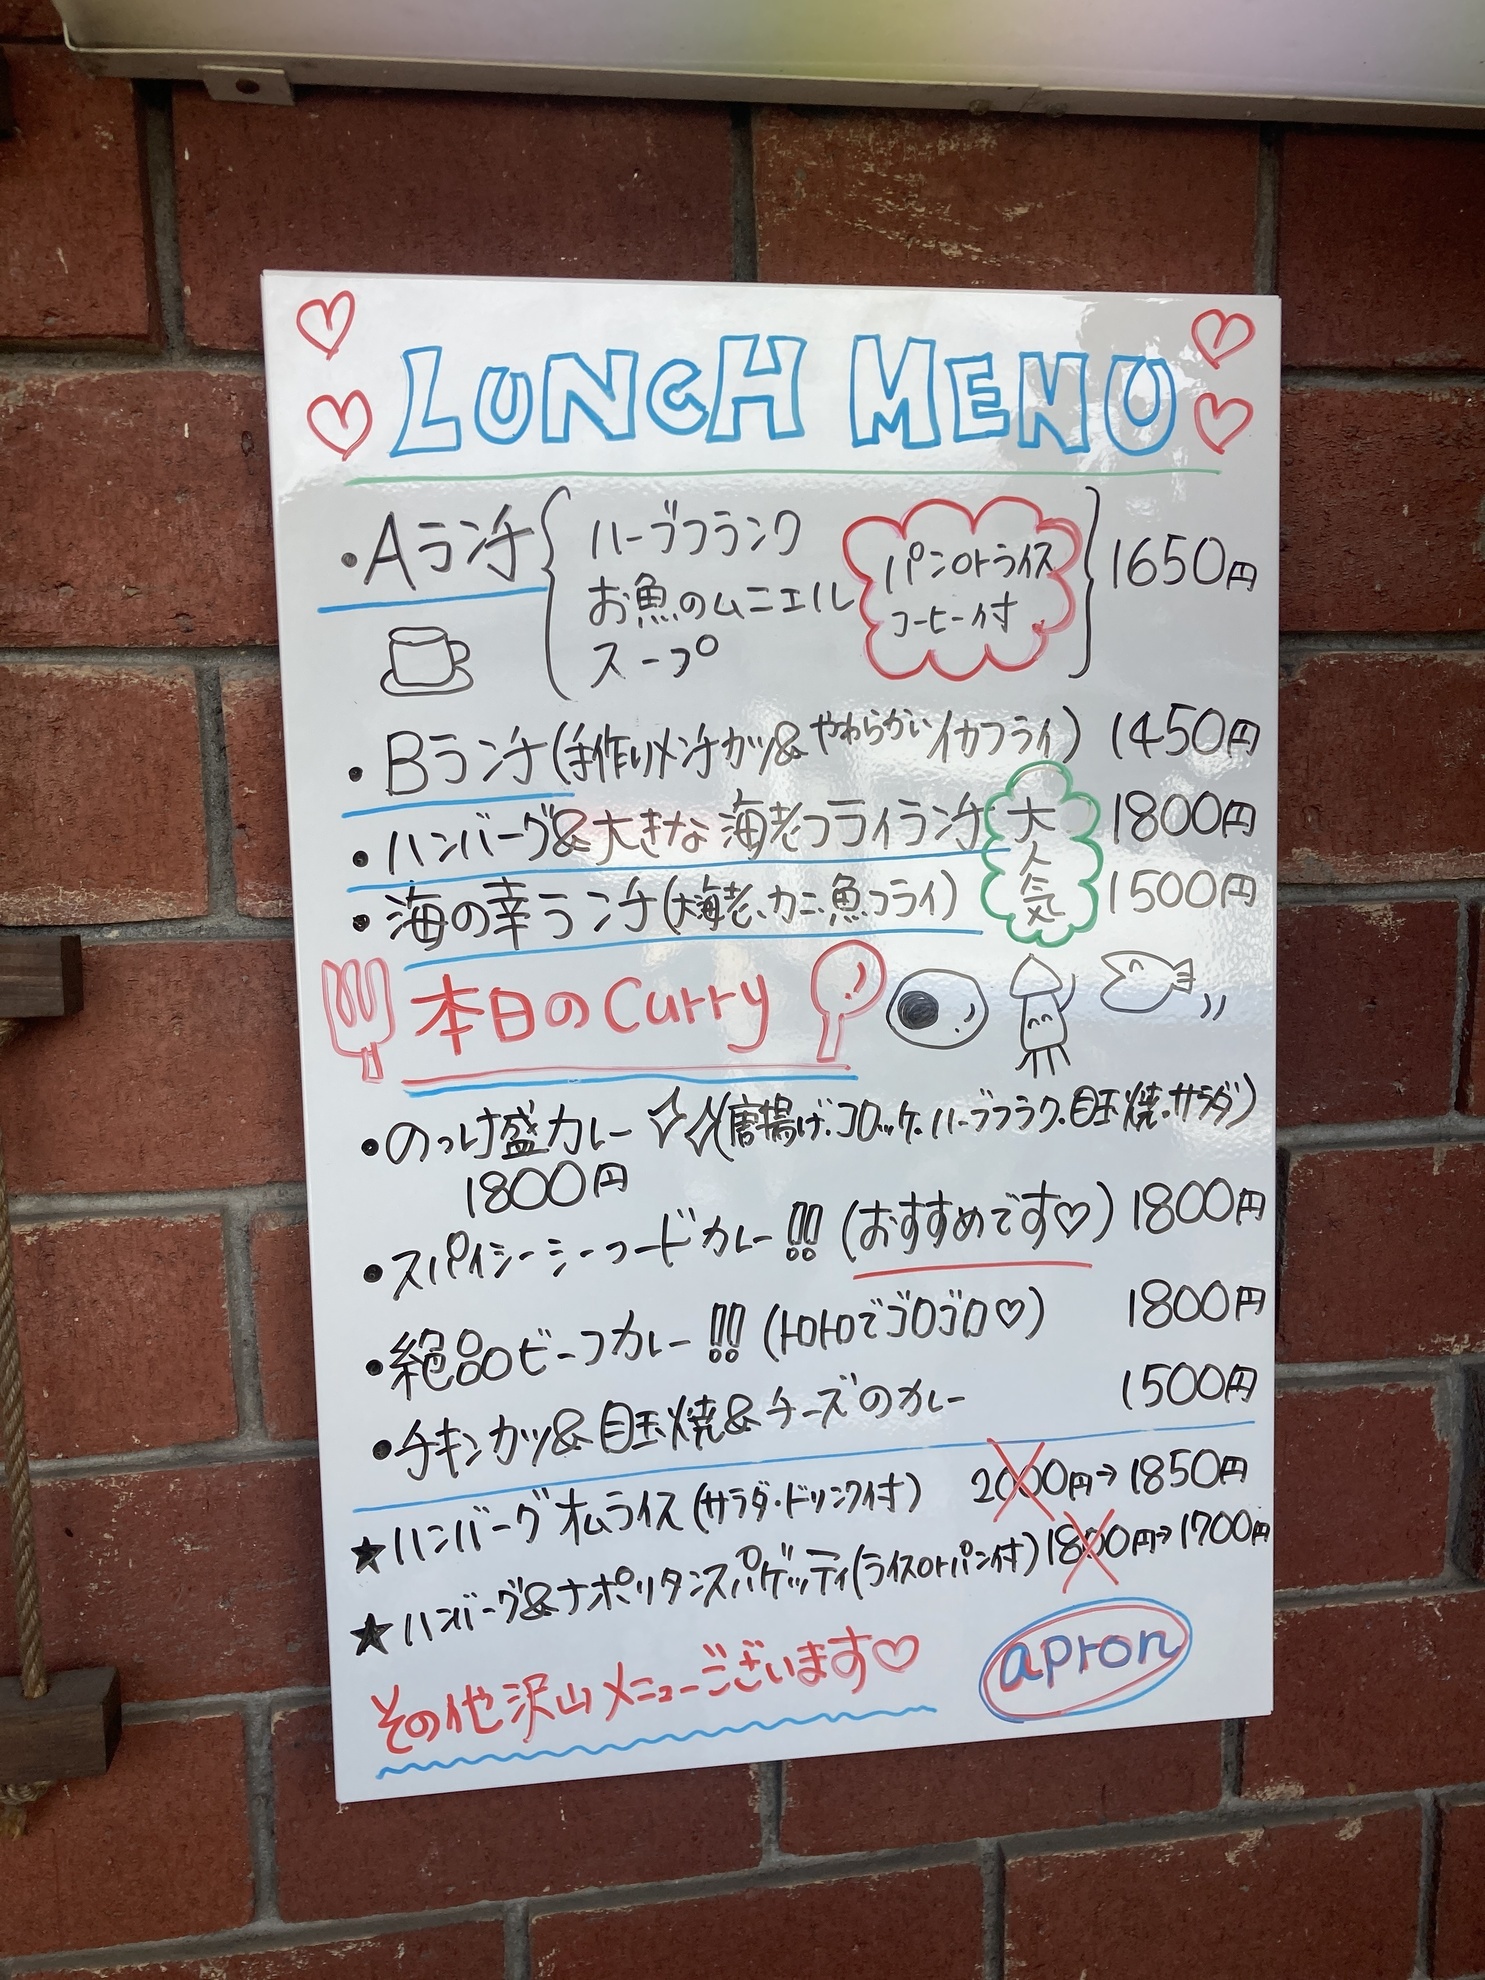 LUNCH MENU
・Aランチ
ハーブフランク
お魚のムニエル
スープ
パンorライス
コーヒー付
1650円
・Bランチ(手作りメンチカツ&やわらかいイカフライ) 1450円
・ハンバーグ&大きな海老フライランチ 1800円
・海の幸ランチ(大海老、カニ、魚フライ) 1500円
大人気
本日のCurry
・のっけ盛カレー(唐揚げ・コロッケ・ハーブフランク・目玉焼・サラダ)
1800円
・スパイシーシーフードカレー!!(おすすめです♡) 1800円
・絶品ビーフカレー!!(トロトロでゴロゴロ♡) 1800円
・チキンカツ&目玉焼&チーズのカレー 1500円
★ハンバーグオムライス(サラダ・ドリンク付) 2000円→1850円
★ハンバーグ&ナポリタンスパゲッティ(ライスorパン付) 1800円→1700円
その他沢山メニューございます♡
apron